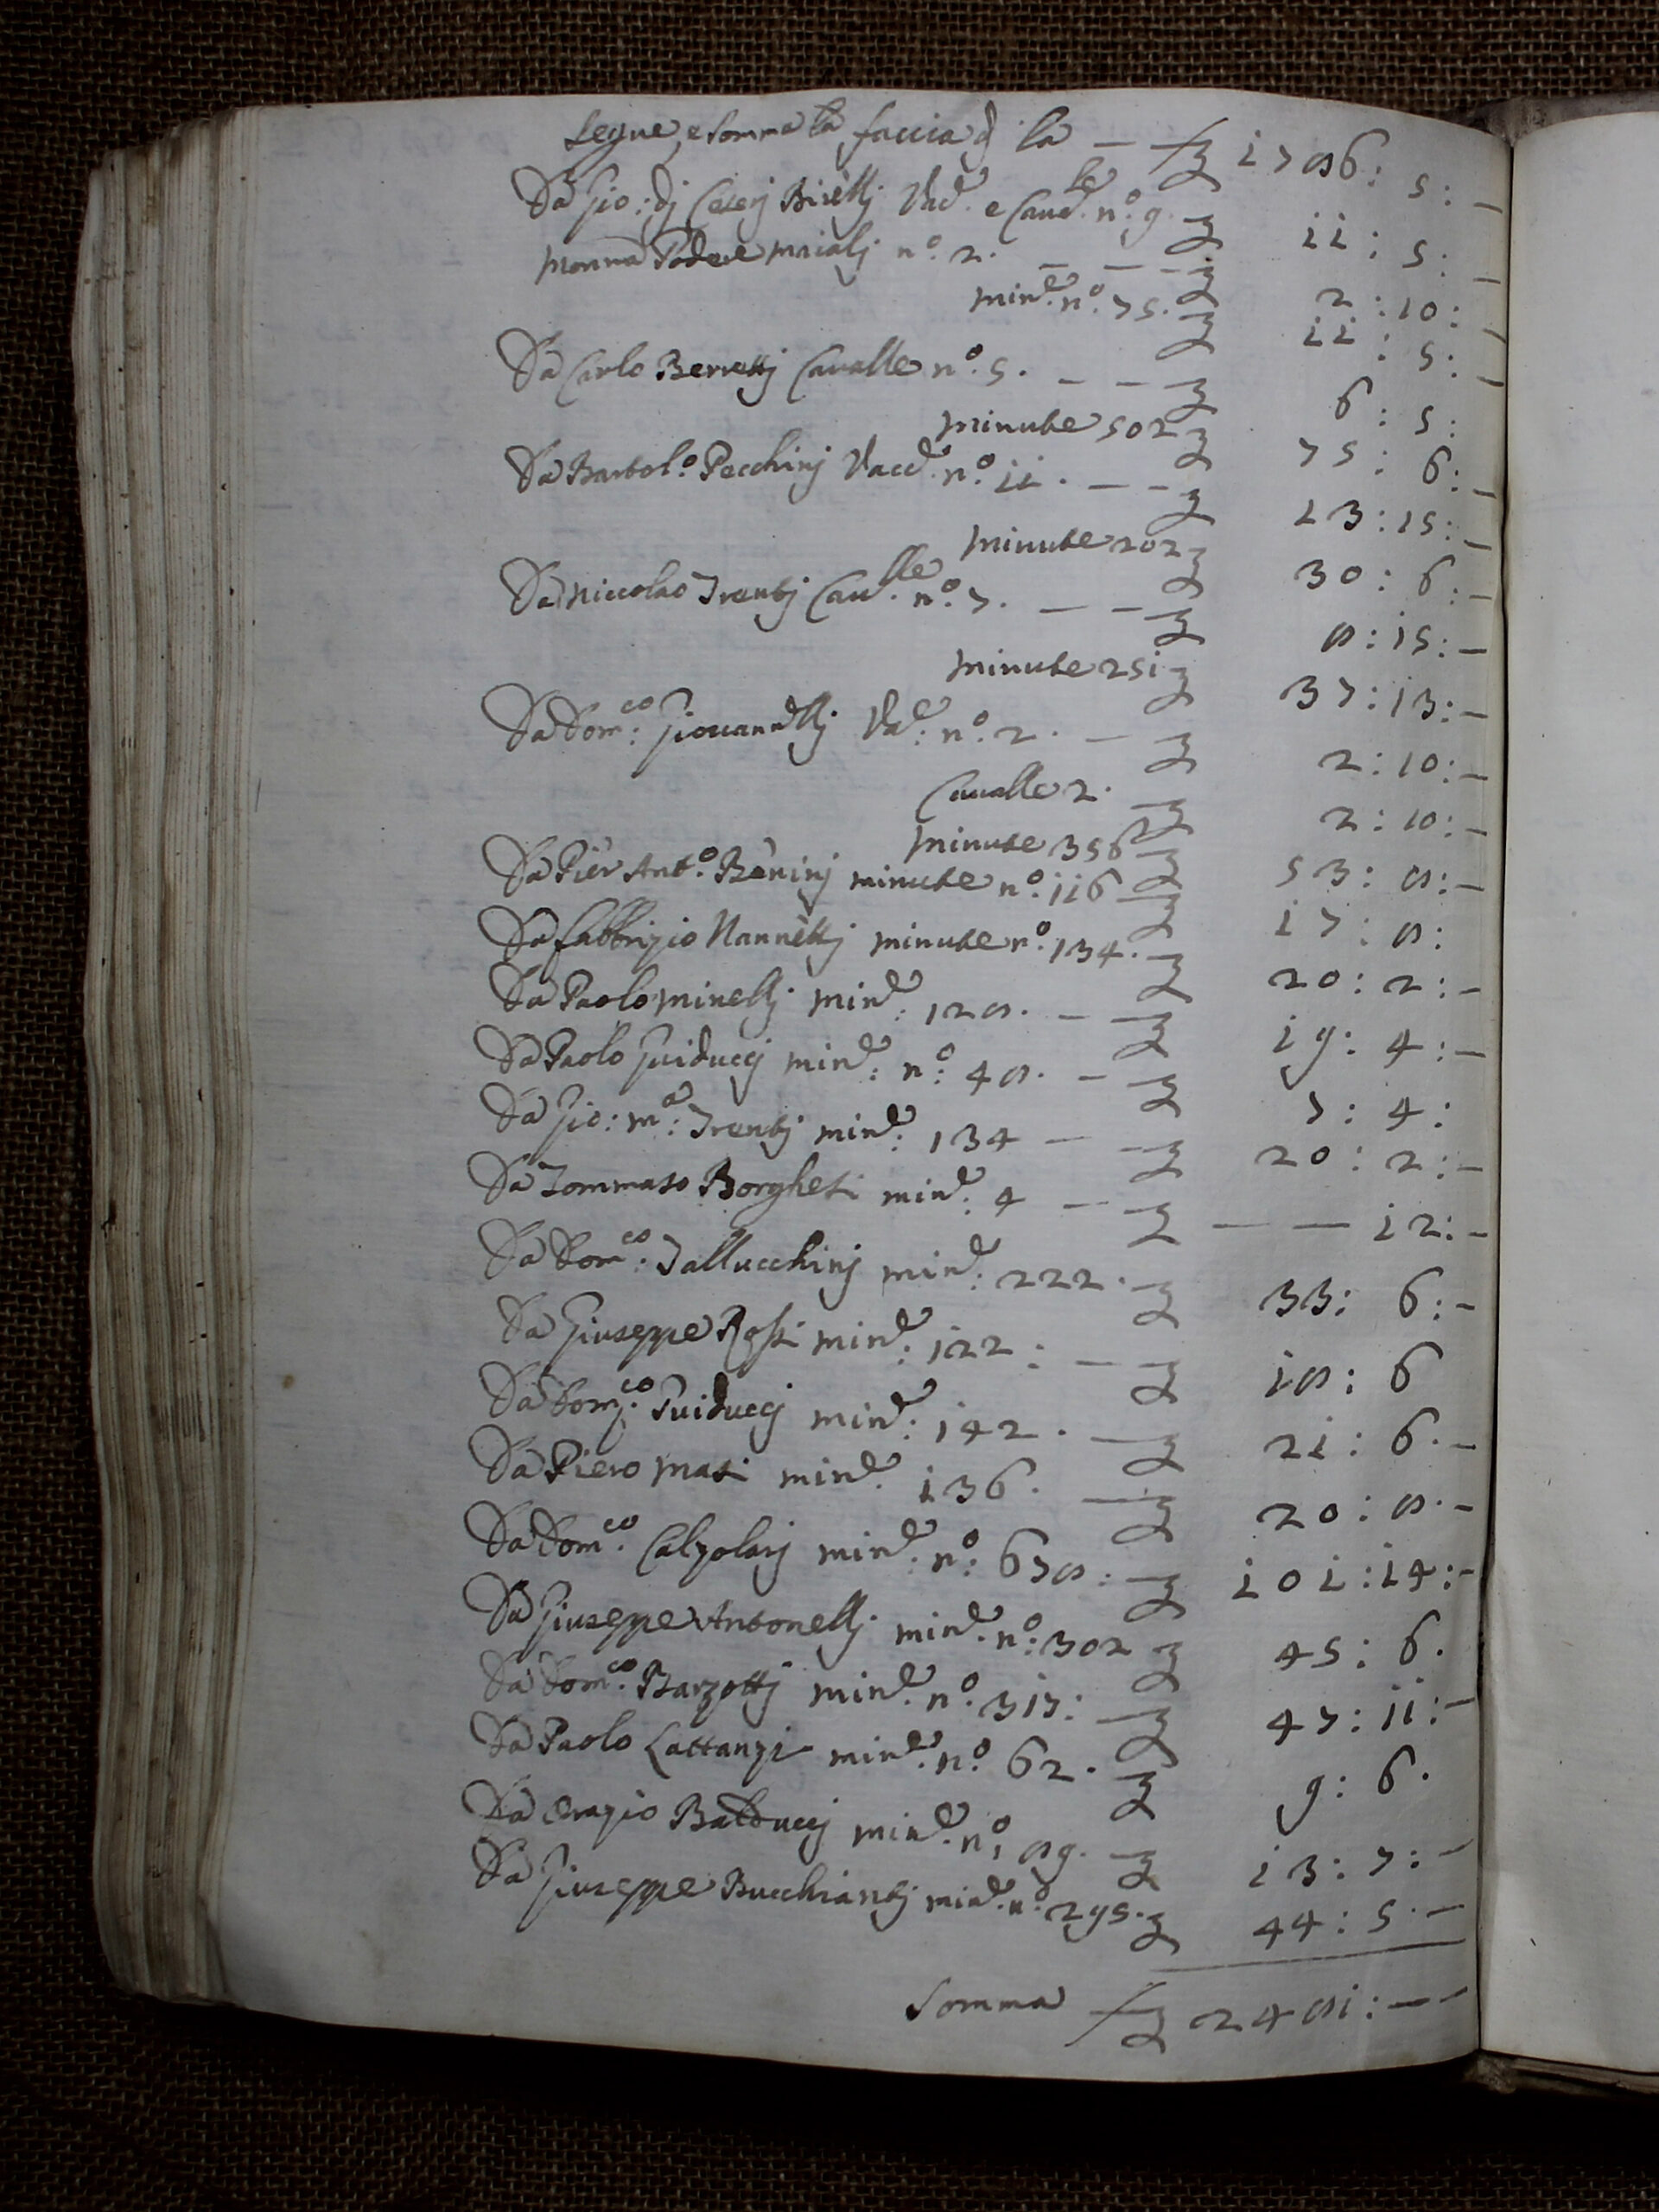 Segue, e Somma la faccia d la — — £ 1786: 5: —
Da Gio: dj Ceserj Birellj Vac.e e Cav.le n.o 9. £ 11: 5: —
Monna Podere maialj n.o 2. — — — £ 2: 10: —
min.e n.o 75. £ 11: 5: —
Da Carlo Berrettj Cavalle n.o 5. — — £ 6: 5:
minute 502 £ 75: 6: —
Da Bartol.o Pecchinj Vacc.e n.o 11. — — £ 13: 15: —
minute 202 £ 30: 6: —
Da Niccolao Trentj Cav.lle n.o 7. — — £ 8: 15: —
minute 251 £ 37: 13: —
Da Dom.co Giovannellj Va.e n.o 2. — £ 2: 10: —
Cavalle 2. £ 2: 10: —
minute 356 £ 53: 8: —
Da Pier Ant.o Baninj minute n.o 116 £ 17: 8:
Da Fabbrizio Nannettj minute n.o 134. £ 20: 2: —
Da Paolo Minellj min.e: 128. — £ 19: 4: —
Da Paolo Guiduccj min.e: n.o 48. — £ 7: 4:
Da Gio: M.a: Trentj min.e: 134 — — £ 20: 2: —
Da Tommaso Borghesi min.e: 4 — £ — — 12: —
Da Dom.co: Tallucchinj min.e: 222. £ 33: 6: —
Da Giuseppe Rossi min.e: 122: — £ 18: 6
Da Dom.co Guiduccj min.e: 142. — £ 21: 6. —
Da Piero Masi min.e 136. — £ 20: 8. —
Da Dom.co Calzolarj min.e: n.o: 678: — £ 101: 14: —
Da Giuseppe Antonellj min.e n.o: 302 £ 45: 6.
Da Dom.co Barzottj min.e n.o 317: — £ 47: 11: —
Da Paolo Lattanzi min.e n.o 62. £ 9: 6.
Da Orazio Balduccj min.e n.o 89. £ 13: 7: —
Da Giuseppe Bucchiantj min.e n.o 295. £ 44: 5. —
Somma £ 2481: — —